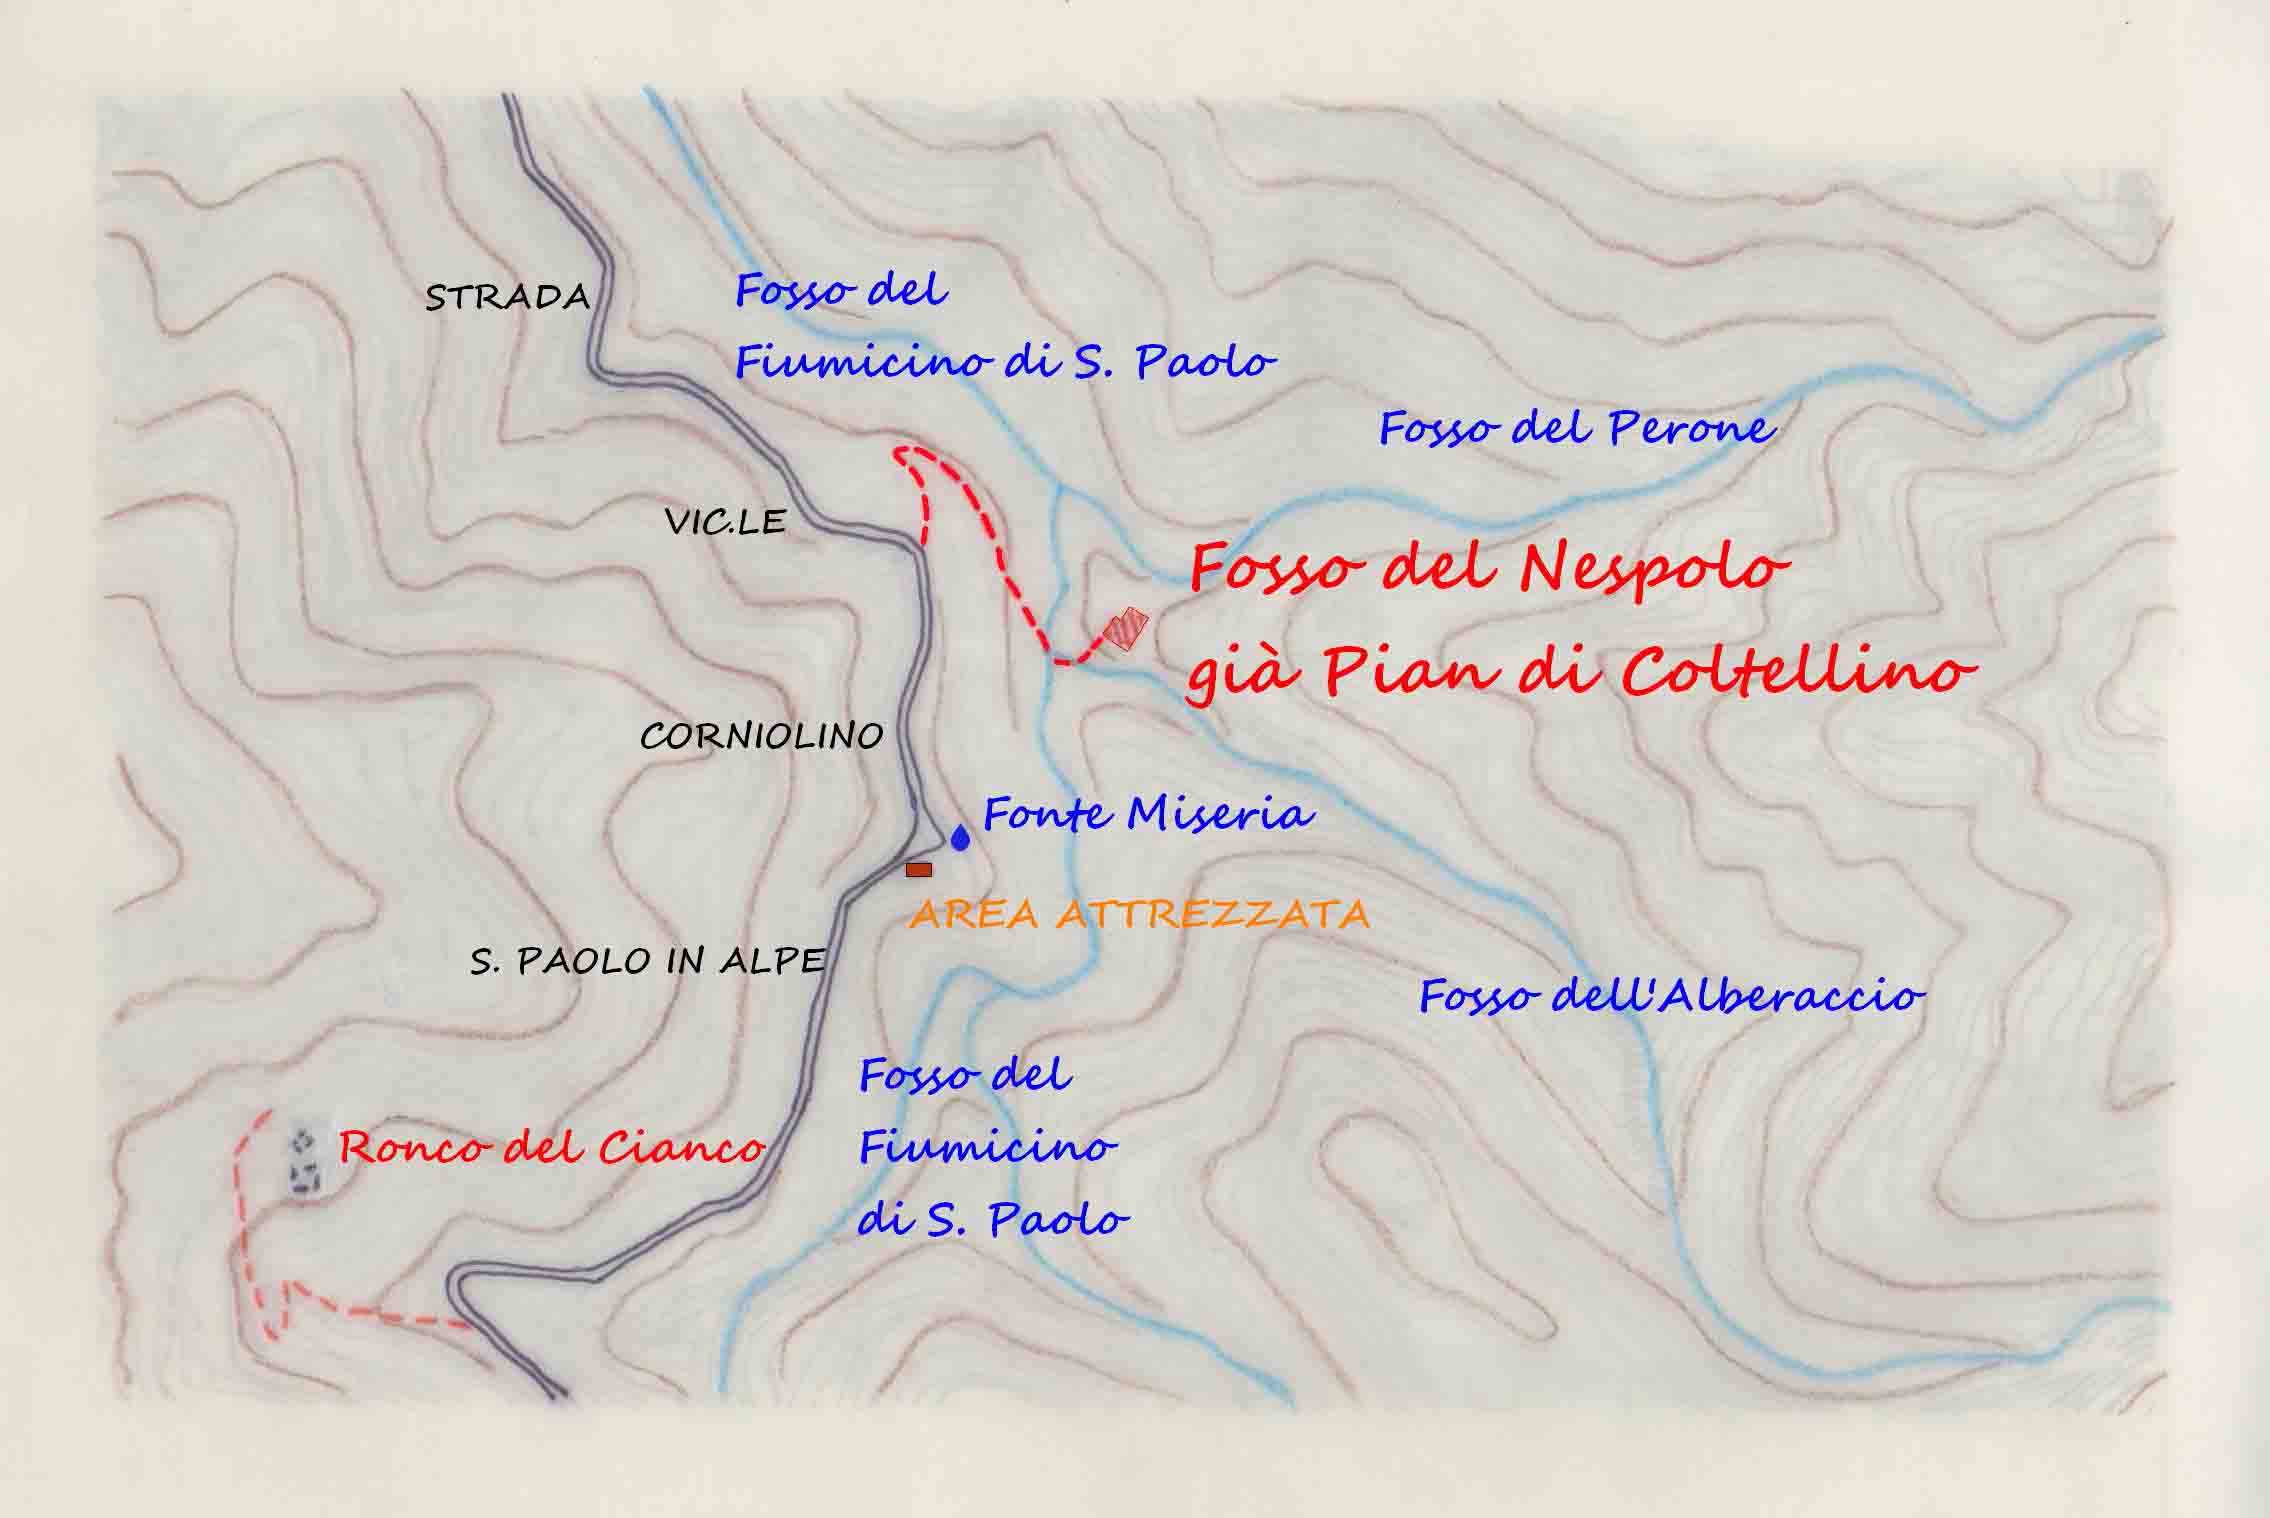 STRADA
Fosso del
Fiumicino di S. Paolo
Fosso del Perone
VIC.LE
Fosso del Nespolo
già Pian di Coltellino
CORNIOLINO
Fonte Miseria
AREA ATTREZZATA
S. PAOLO IN ALPE
Fosso dell'Alberaccio
Fosso del
Fiumicino
di S. Paolo
Ronco del Cianco